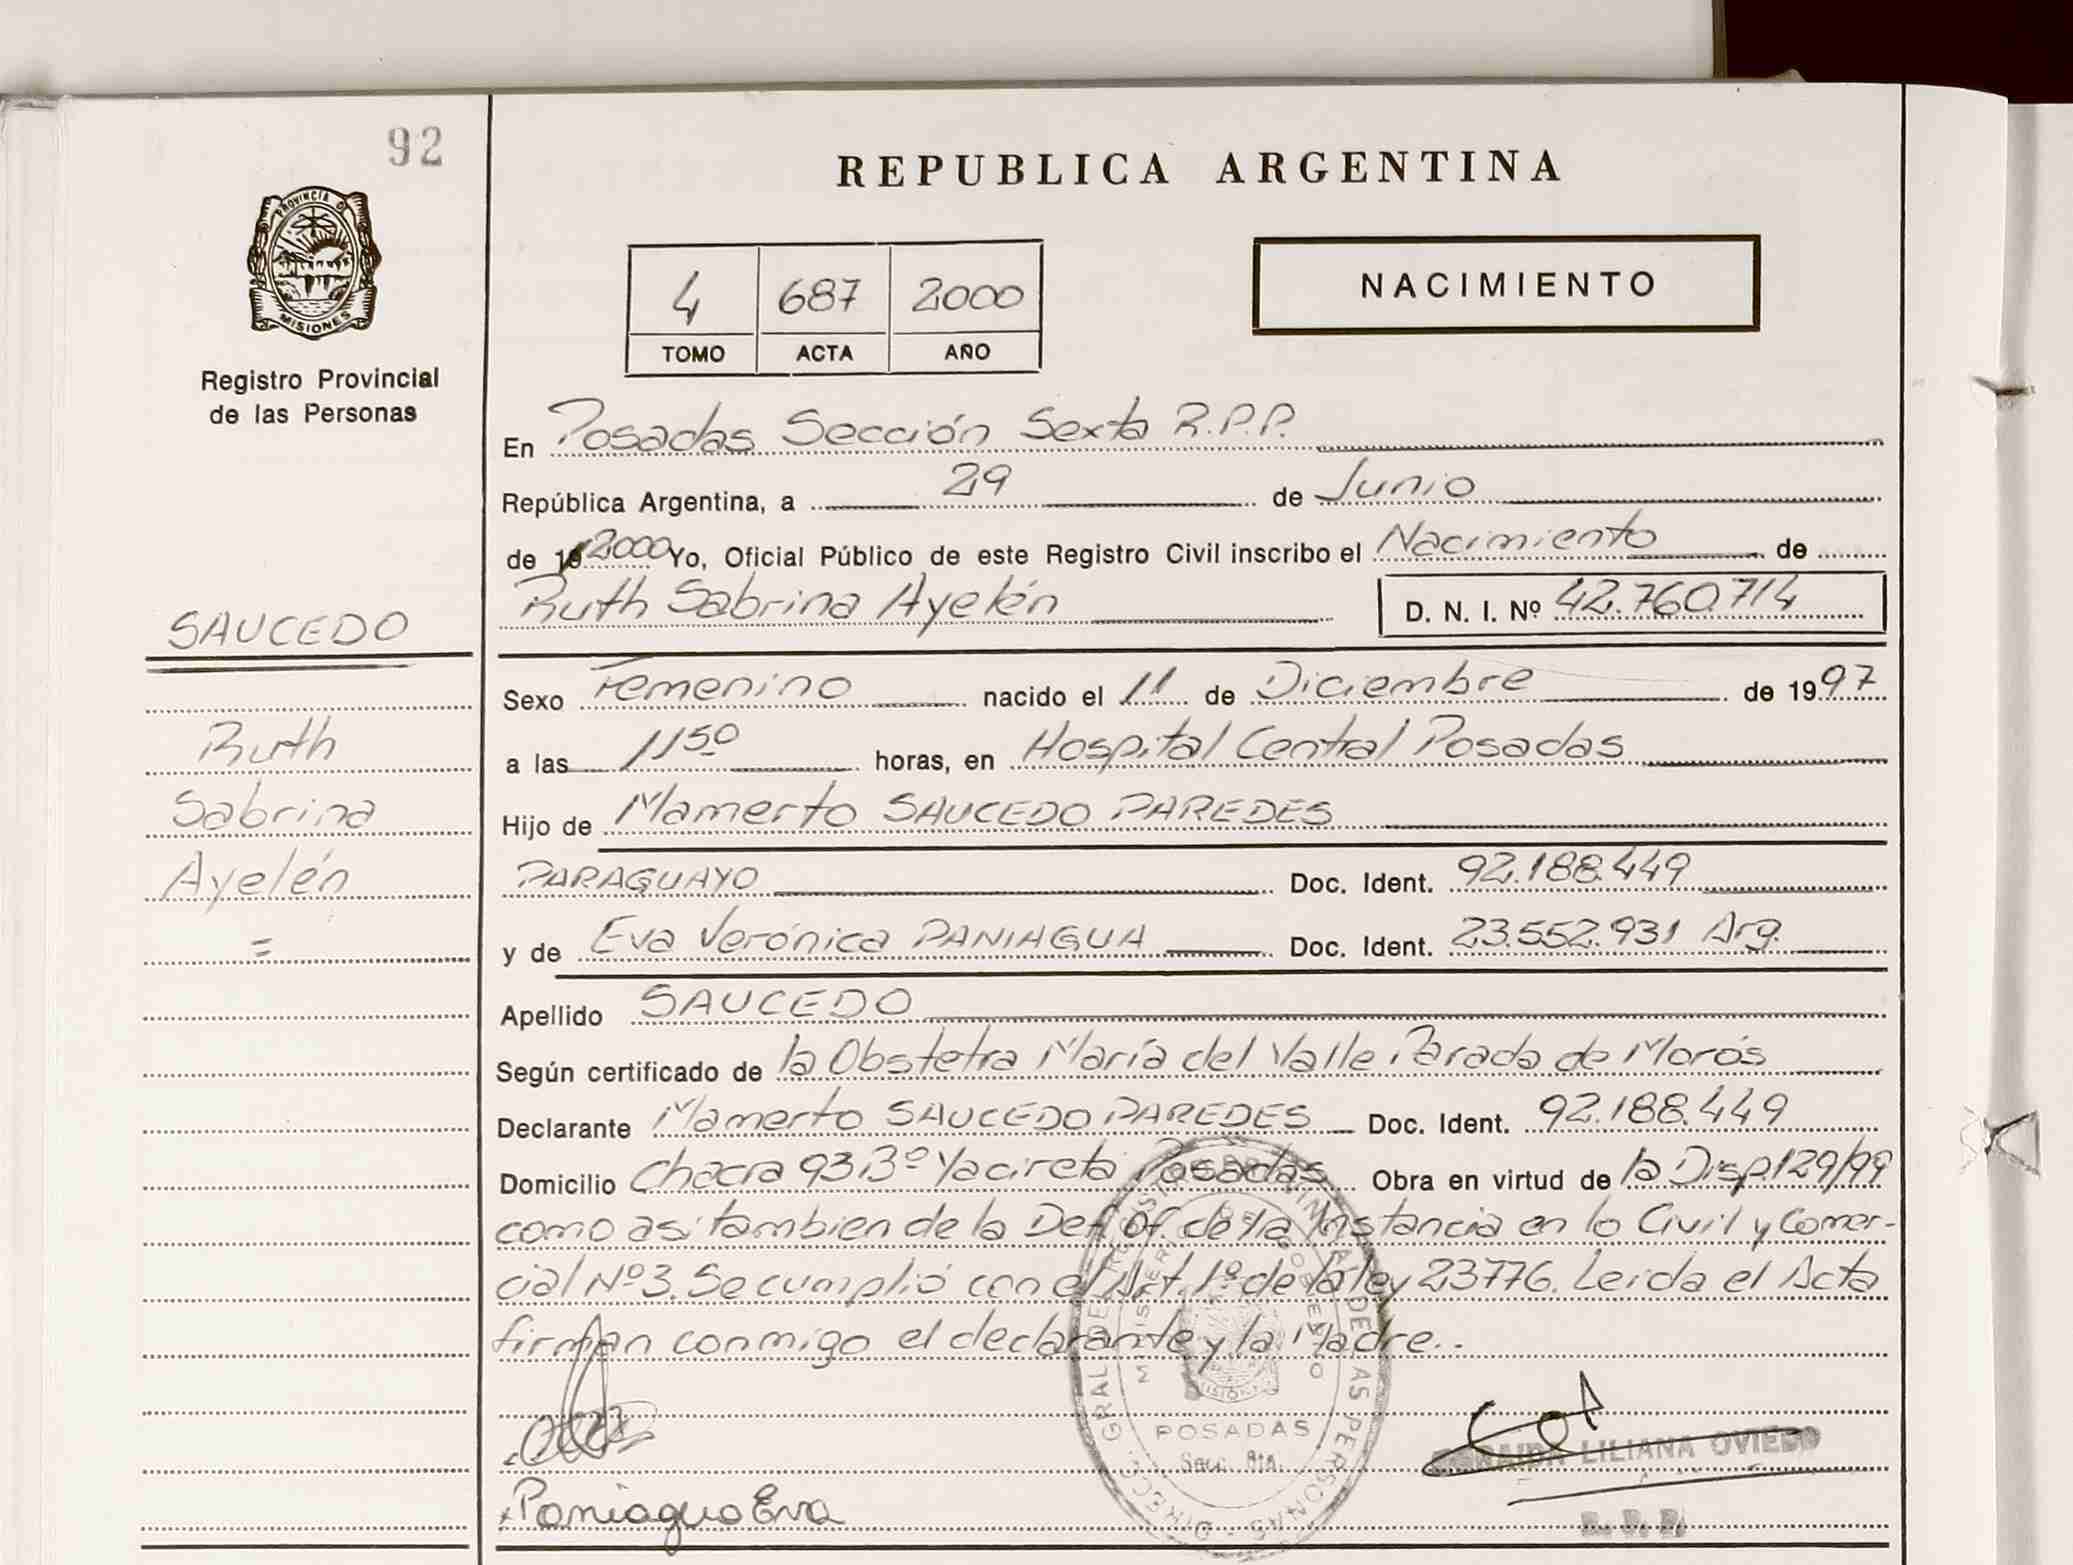 92
REPUBLICA ARGENTINA
PROVINCIA D
MISIONES
Registro Provincial
de las Personas
4 687 2000
TOMO ACTA AÑO
NACIMIENTO
En Posadas Sección Sexta R.P.P.
República Argentina, a 29 de Junio
de 19 2000 Yo, Oficial Público de este Registro Civil inscribo el Nacimiento de
Ruth Sabrina Ayelén D. N. I. Nº 42.760.714
SAUCEDO
Ruth
Sabrina
Ayelén
=
Sexo Femenino nacido el 11 de Diciembre de 1997
a las 1150 horas, en Hospital Central Posadas
Hijo de Mamerto SAUCEDO PAREDES
PARAGUAYO Doc. Ident. 92.188.449
y de Eva Verónica PANIAGUA Doc. Ident. 23.552.931 Arg.
Apellido SAUCEDO
Según certificado de la Obstetra María del Valle Parada de Morós
Declarante Mamerto SAUCEDO PAREDES Doc. Ident. 92.188.449
Domicilio Chacra 93 Bº Yacireta Posadas Obra en virtud de la Disp. 129/99
como asi tambien de la Def. Of. de 1a Instancia en lo Civil y Comer-
cial Nº3. Se cumplió con el Art. 1º de la ley 23776. Leida el Acta
firman conmigo el declarante y la Madre..
Paniagua Eva
DIRECC. GRAL. DE REGISTRO PROVINCIAL DE LAS PERSONAS
MINISTERIO DE GOBIERNO
MISIONES
POSADAS
LILIANA OVIEDO